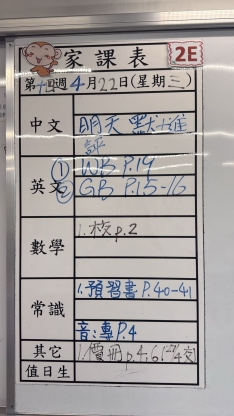 家課表 2E
第十四週 4月22日(星期三)
中文 明天默書
英文 ① WB P.19
② GB P.15-16
數學 1. 校 p.2
常識 1. 預習書 P.40-41
音:專 P.4
其它 1. 價冊 p.4, 6
值日生